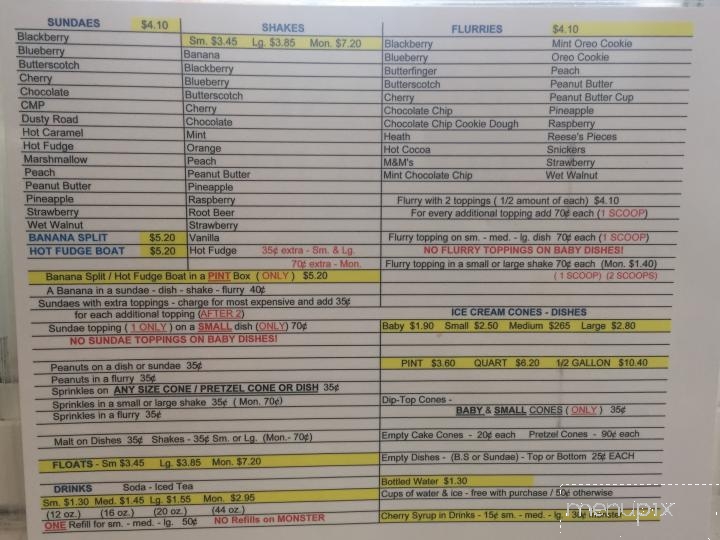 SUNDAES $4.10
Blackberry
Blueberry
Butterscotch
Cherry
Chocolate
CMP
Dusty Road
Hot Caramel
Hot Fudge
Marshmallow
Peach
Peanut Butter
Pineapple
Strawberry
Wet Walnut
BANANA SPLIT $5.20
HOT FUDGE BOAT $5.20
SHAKES
Sm. $3.45 Lg. $3.85 Mon. $7.20
Banana
Blackberry
Blueberry
Butterscotch
Cherry
Chocolate
Mint
Orange
Peach
Peanut Butter
Pineapple
Raspberry
Root Beer
Strawberry
Vanilla
Hot Fudge 35¢ extra - Sm. & Lg.
70¢ extra - Mon.
Banana Split / Hot Fudge Boat in a PINT Box ( ONLY ) $5.20
A Banana in a sundae - dish - shake - flurry 40¢
Sundaes with extra toppings - charge for most expensive and add 35¢
for each additional topping (AFTER 2)
Sundae topping ( 1 ONLY ) on a SMALL dish (ONLY) 70¢
NO SUNDAE TOPPINGS ON BABY DISHES!
Peanuts on a dish or sundae 35¢
Peanuts in a flurry 35¢
Sprinkles on ANY SIZE CONE / PRETZEL CONE OR DISH 35¢
Sprinkles in a small or large shake 35¢ ( Mon. 70¢)
Sprinkles in a flurry 35¢
Malt on Dishes 35¢ Shakes - 35¢ Sm. or Lg. (Mon.- 70¢)
FLOATS - Sm $3.45 Lg. $3.85 Mon. $7.20
DRINKS Soda - Iced Tea
Sm. $1.30 Med. $1.45 Lg. $1.55 Mon. $2.95
(12 oz.) (16 oz.) (20 oz.) (44 oz.)
ONE Refill for sm. - med. - lg. 50¢ NO Refills on MONSTER
FLURRIES $4.10
Blackberry
Blueberry
Butterfinger
Butterscotch
Cherry
Chocolate Chip
Chocolate Chip Cookie Dough
Heath
Hot Cocoa
M&M's
Mint Chocolate Chip
Mint Oreo Cookie
Oreo Cookie
Peach
Peanut Butter
Peanut Butter Cup
Pineapple
Raspberry
Reese's Pieces
Snickers
Strawberry
Wet Walnut
Flurry with 2 toppings ( 1/2 amount of each) $4.10
For every additional topping add 70¢ each (1 SCOOP)
Flurry topping on sm. - med. - lg. dish 70¢ each (1 SCOOP)
NO FLURRY TOPPINGS ON BABY DISHES!
Flurry topping in a small or large shake 70¢ each (Mon. $1.40)
( 1 SCOOP) (2 SCOOPS)
ICE CREAM CONES - DISHES
Baby $1.90 Small $2.50 Medium $265 Large $2.80
PINT $3.60 QUART $6.20 1/2 GALLON $10.40
Dip-Top Cones -
BABY & SMALL CONES ( ONLY ) 35¢
Empty Cake Cones - 20¢ each Pretzel Cones - 90¢ each
Empty Dishes - (B.S or Sundae) - Top or Bottom 25¢ EACH
Bottled Water $1.30
Cups of water & ice - free with purchase / 50¢ otherwise
Cherry Syrup in Drinks - 15¢ sm. - med. - lg. - 30¢
menupix